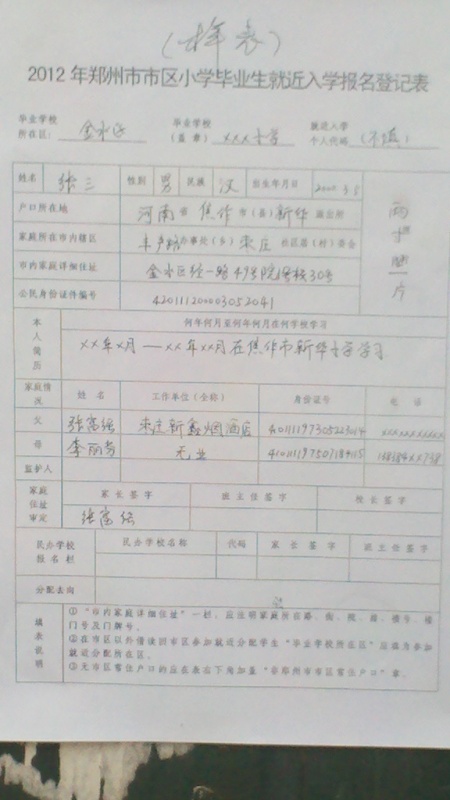 (样表)
2012年郑州市市区小学毕业生就近入学报名登记表
毕业学校 毕业学校 就近入学
所在区: 金水区 (盖章) xxx小学 个人代码 (不填)
姓名 张三 性别 男 民族 汉 出生年月日 2000.3.5
户口所在地 河南省 焦作市(县)新华派出所
家庭所在市内辖区 办事处(乡) 枣庄 社区居(村)委会
市内家庭详细住址 金水区经一路49号院1号楼30号
公民身份证件编号 420111200003052041
两寸照片
本人简历 何年何月至何年何月在何学校学习
xx年x月—xx年xx月在焦作市新华小学学习
家庭情况 姓名 工作单位(全称) 身份证号 电话
父 张富强 枣庄新鑫烟酒店 xxxxxxxxxxx
母 李丽芳 无业
监护人
家庭住址审定 家长签字 班主任签字 校长签字
张富强
民办学校报名栏 民办学校名称 代码 家长签字 班主任签字
分配去向
填表说明
①“市内家庭详细住址”一栏,应注明家庭所在路、街、院、楼号、楼
门号及门牌号。
②在市区以外借读回市区参加就近分配学生“毕业学校所在区”应填为参加
就近分配所在区。
③无市区常住户口的应在表右下角加盖“非郑州市市区常住户口”章。